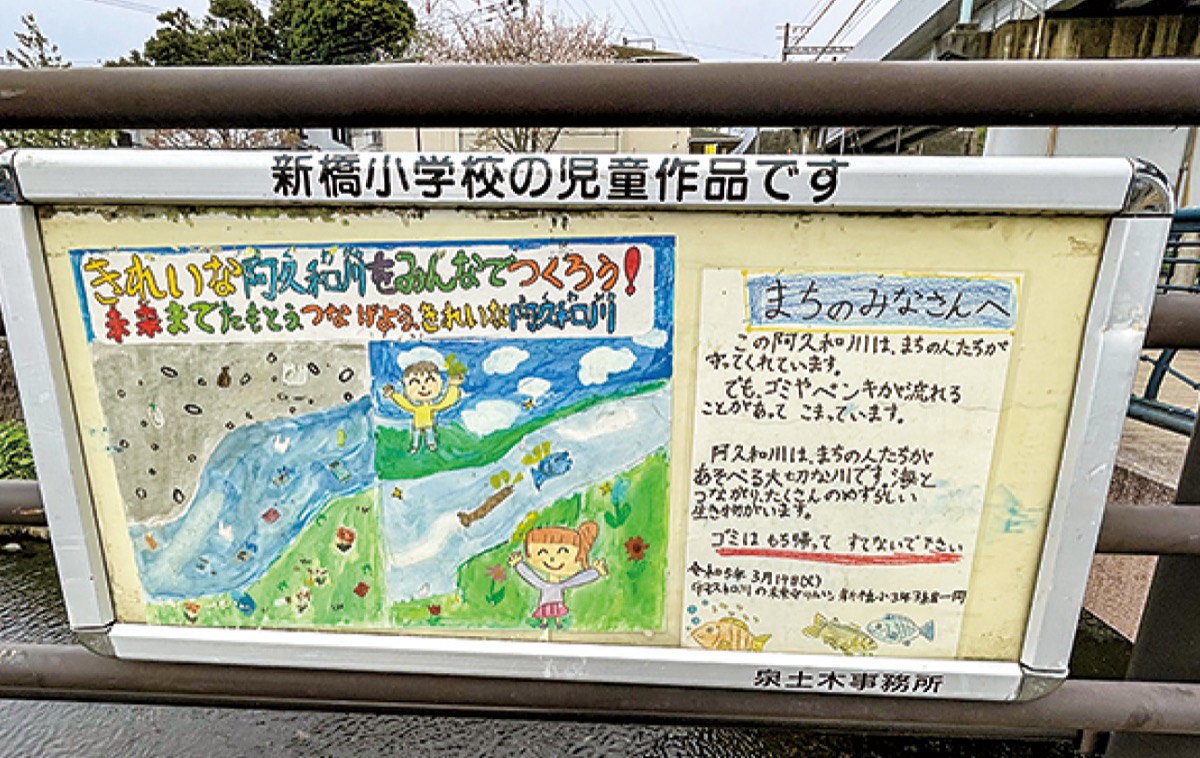 新橋小学校の児童作品です
きれいな阿久和川をみんなでつくろう!
未来までたもとう、つなげよう、きれいな阿久和川
まちのみなさんへ
この阿久和川は、まちの人たちが
守ってくれています。
でも、ゴミやペンキが流れる
ことがあって こまっています。
阿久和川は、まちの人たちが
あそべる大切な川です。海と
つながり、たくさんのめずらしい
生き物がいます。
ゴミは もち帰って すてないで下さい
令和5年 3月
阿久和川の未来 新橋小3年
泉土木事務所